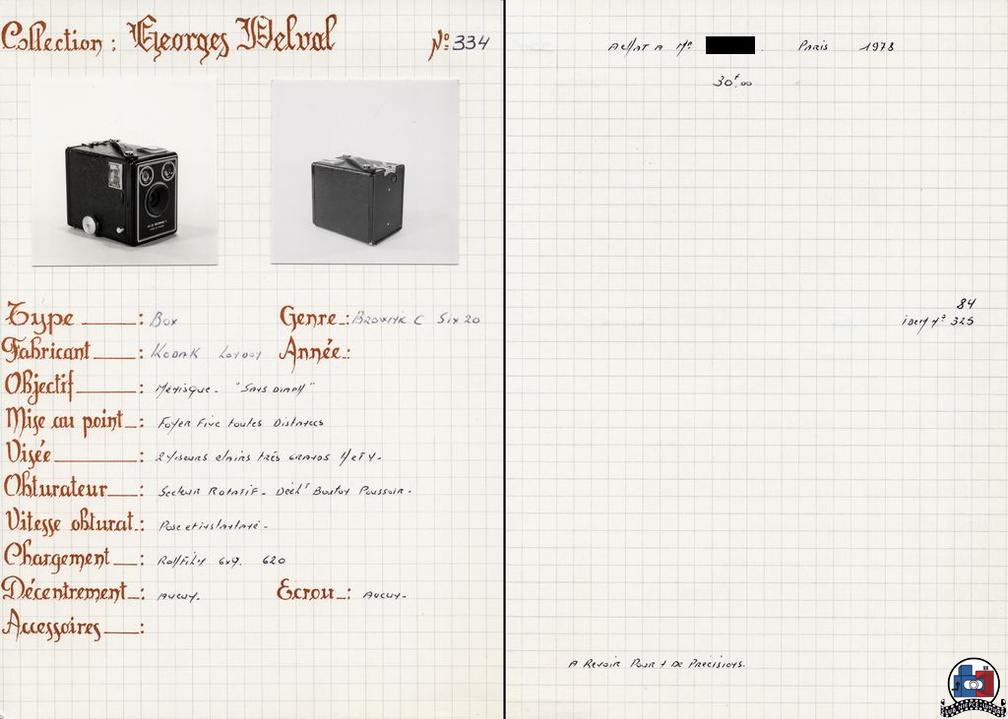 Collection : Georges Delval
N° 334
Type : Box
Genre : Brownie C Six 20
Fabricant : Kodak London
Année :
Objectif : Ménisque. "Sans diaph"
Mise au point : Foyer Fixe toutes Distances
Visée : 2 Viseurs clairs très grands H et V.
Obturateur : Secteur Rotatif. Décht Bouton Poussoir.
Vitesse obturat : Pose et instantané.
Chargement : Rollfilm 6x9. 620
Décentrement : Aucun.
Ecrou : Aucun.
Accessoires :
Achat a Mr Paris 1978
30f.00
84
idem n° 325
A Revoir Pour + De Précisions.